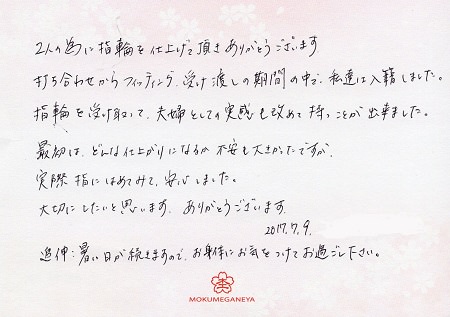 2人の為に指輪を仕上げて頂きありがとうございます
打ち合わせからフィッティング、受け渡しの期間の中で、私達は入籍しました。
指輪を受け取って、夫婦としての実感も改めて持つことが出来ました。
最初は、どんな仕上がりになるか不安も大きかったですが、
実際指にはめてみて、安心しました。
大切にしたいと思います。ありがとうございます。
2017.7.9.
追伸：暑い日が続きますので、お身体にお気をつけてお過ごし下さい。
MOKUMEGANEYA